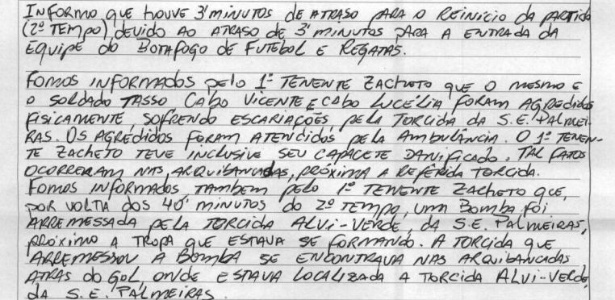 INFORMO QUE HOUVE 3' MINUTOS DE ATRASO PARA O REINICIO DA PARTIDA
(2º TEMPO), DEVIDO AO ATRASO DE 3' MINUTOS PARA A ENTRADA DA
EQUIPE DO BOTAFOGO DE FUTEBOL E REGATAS.
FOMOS INFORMADOS PELO 1º TENENTE ZACHETO QUE O MESMO E
O SOLDADO TASSO CABO VICENTE E CABO LUCÉLIA FORAM AGREDIDOS
FISICAMENTE, SOFRENDO ESCARIAÇÕES, PELA TORCIDA DA S.E. PALMEI-
RAS. OS AGREDIDOS FORAM ATENDIDOS PELA AMBULÂNCIA. O 1º TENEN-
TE ZACHETO TEVE INCLUSIVE SEU CAPACETE DANIFICADO. TAL FATOS
OCORRERAM NAS ARQUIBANCADAS, PRÓXIMA A REFERIDA TORCIDA.
FOMOS INFORMADOS TAMBÉM PELO 1º TENENTE ZACHETO QUE,
POR VOLTA DOS 40' MINUTOS DO 2º TEMPO, UM BOMBA FOI
ARREMESSADA PELA TORCIDA ALVI-VERDE, DA S.E. PALMEIRAS,
PRÓXIMO A TROPA QUE ESTAVA SE FORMANDO. A TORCIDA QUE
ARREMESSOU A BOMBA SE ENCONTRAVA NAS ARQUIBANCADAS
ATRAS DO GOL, ONDE ESTAVA LOCALIZADA A TORCIDA ALVI-VERDE,
DA S.E. PALMEIRAS.